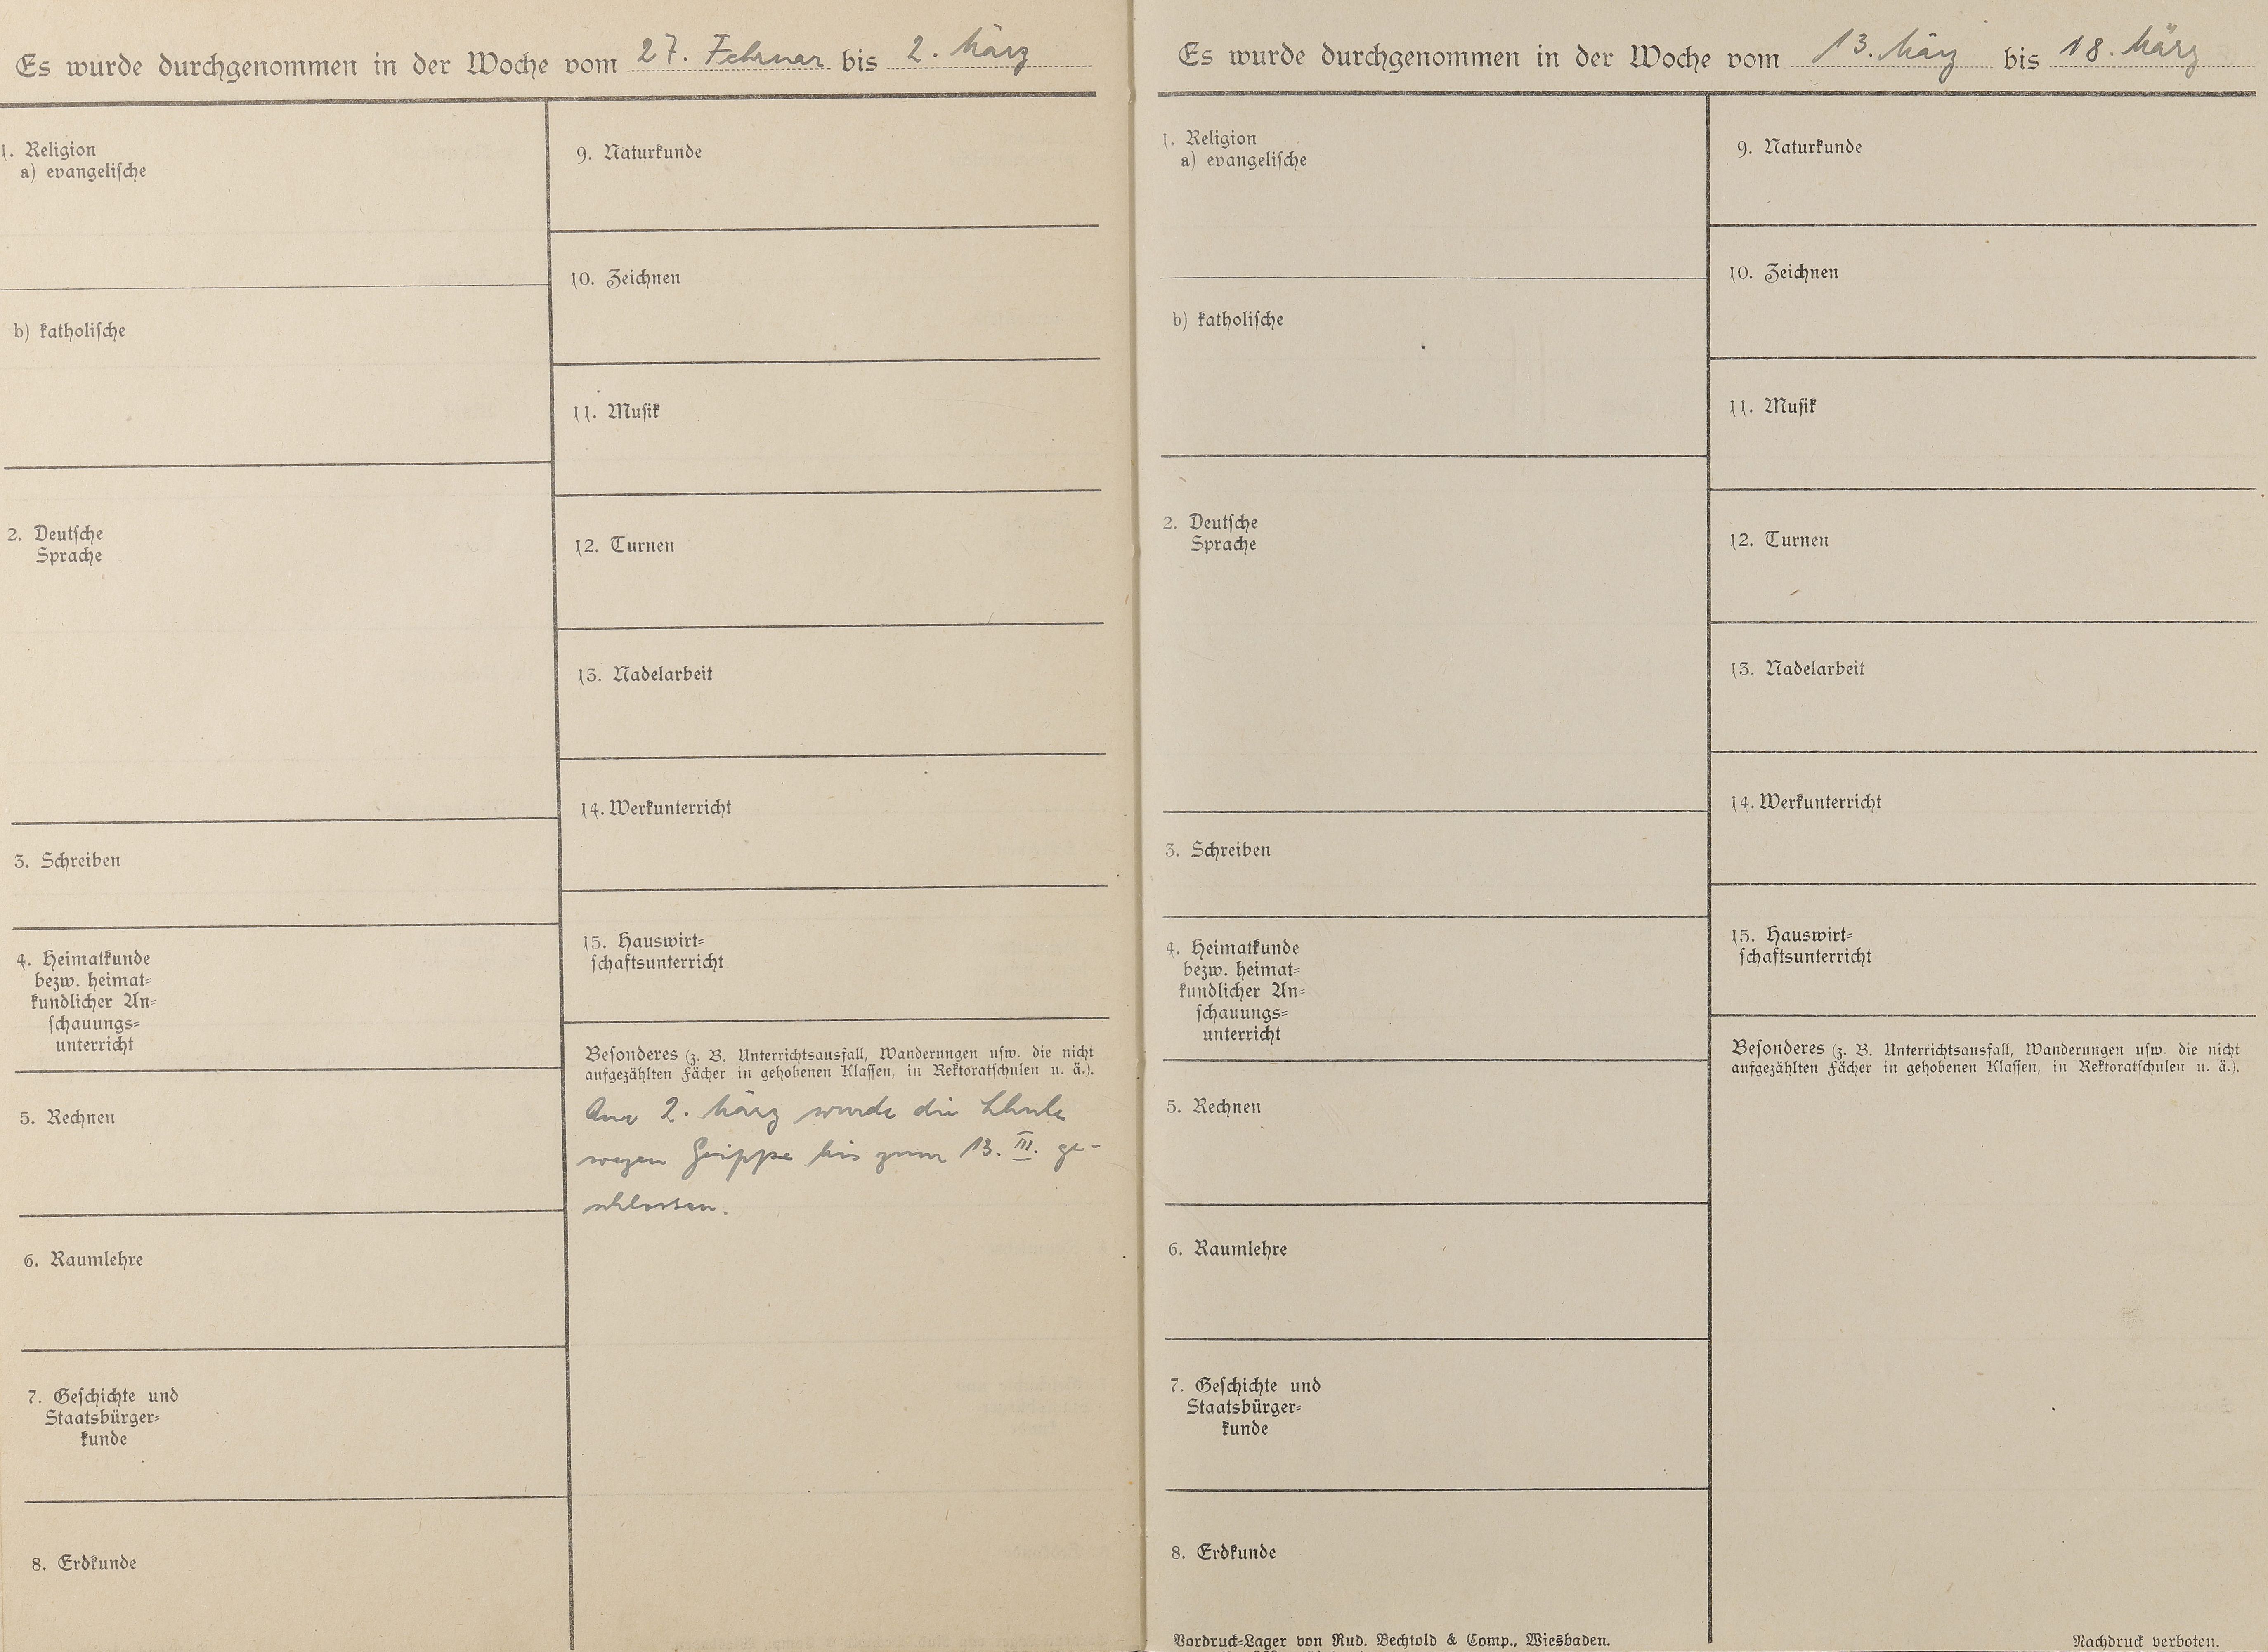 Es wurde durchgenommen in der Woche vom 27. Februar bis 2. März
1. Religion
a) evangelische
b) katholische
2. Deutsche
Sprache
3. Schreiben
4. Heimatkunde
bezw. heimat=
kundlicher An=
schauungs=
unterricht
5. Rechnen
6. Raumlehre
7. Geschichte und
Staatsbürger=
kunde
8. Erdkunde
9. Naturkunde
10. Zeichnen
11. Musik
12. Turnen
13. Nadelarbeit
14. Werkunterricht
15. Hauswirt=
schaftsunterricht
Besonderes (z. B. Unterrichtsausfall, Wanderungen usw. die nicht
aufgezählten Fächer in gehobenen Klassen, in Rektoratschulen u. ä.).
Am 2. März wurde die Schule
wegen Grippe bis zum 13. III. ge-
schlossen.
Es wurde durchgenommen in der Woche vom 13. März bis 18. März
1. Religion
a) evangelische
b) katholische
2. Deutsche
Sprache
3. Schreiben
4. Heimatkunde
bezw. heimat=
kundlicher An=
schauungs=
unterricht
5. Rechnen
6. Raumlehre
7. Geschichte und
Staatsbürger=
kunde
8. Erdkunde
9. Naturkunde
10. Zeichnen
11. Musik
12. Turnen
13. Nadelarbeit
14. Werkunterricht
15. Hauswirt=
schaftsunterricht
Besonderes (z. B. Unterrichtsausfall, Wanderungen usw. die nicht
aufgezählten Fächer in gehobenen Klassen, in Rektoratschulen u. ä.).
Vordruck=Lager von Rud. Bechtold & Comp., Wiesbaden.
Nachdruck verboten.